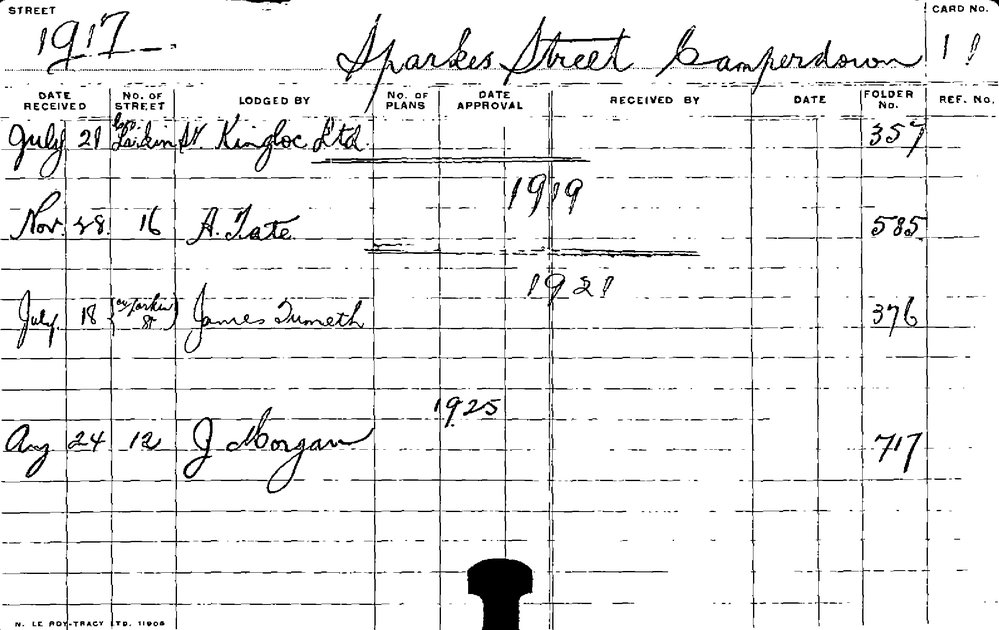 STREET
CARD No.
1917
Sparkes Street Camperdown
1
DATE RECEIVED
No. OF STREET
LODGED BY
No. OF PLANS
DATE APPROVAL
RECEIVED BY
DATE
FOLDER No.
REF. No.
July 21 Larkin St. Kingloc Ltd. 357
1919
Nov. 28 16 A. Tate 585
1921
July 18 Larkin St James Tumeth 376
1925
Aug 24 12 J Morgan 717
N. LE ROY-TRACY LTD. 11906